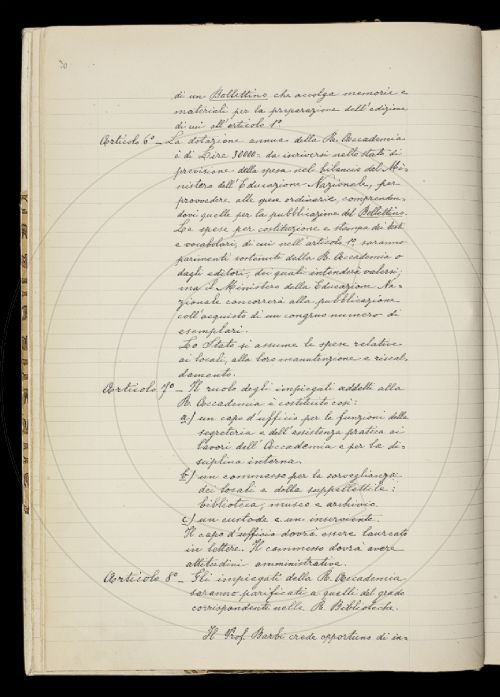 70
di un Bollettino che accolga memorie e
materiali per la preparazione dell'edizione
di cui all'articolo 1°
Articolo 6° - La dotazione annua della R. Accademia
è di Lire 30000= da inscriversi nello stato di
previsione della spesa nel bilancio del Mi-
nistero dell'Educazione Nazionale, per
provvedere alle spese ordinarie, comprenden-
dovi quelle per la pubblicazione del Bollettino.
Le spese per costituzione e stampa dei testi
e vocabolari, di cui nell'articolo 1°, saranno
parimenti sostenuti dalla R. Accademia o
dagli editori, dei quali intenderà valersi;
ma il Ministero della Educazione Na-
zionale concorrerà alla pubblicazione
coll'acquisto di un congruo numero di
esemplari.
Lo Stato si assume le spese relative
ai locali, alla loro manutenzione e riscal-
damento.
Articolo 7° - Il ruolo degli impiegati addetti alla
R. Accademia è costituito così:
a) un capo d'ufficio per le funzioni della
segreteria e dell'assistenza pratica ai
lavori dell'Accademia e per la di-
sciplina interna.
b) un commesso per la sorveglianza
dei locali e della suppellettile:
biblioteca, museo e archivio.
c) un custode e un inserviente.
Il capo d'ufficio dovrà essere laureato
in lettere. Il commesso dovrà avere
attitudini amministrative.
Articolo 8° - Gli impiegati della R. Accademia
saranno parificati a quelli del grado
corrispondente nelle R. Biblioteche.
Il Prof. Barbi crede opportuno di in-